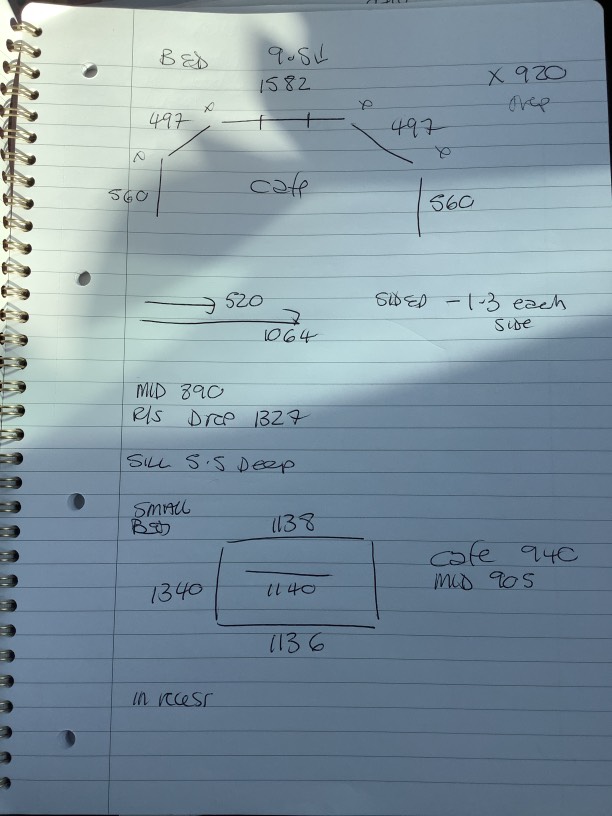 BED
1582
x 920
Drop
497
497
560
cafe
560
520
1064
SIDED - 1-3 each
side
MID 890
R/S Drop 1327
SILL 5.5 Deep
SMALL
BED
1138
1340
1140
1136
cafe 940
MID 905
in recess